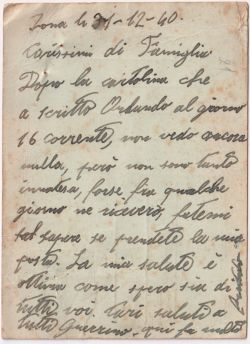 Zona lì 31-12-40.
Carissimi di Famiglia
Dopo la cartolina che
a scritto Orlando al giorno
16 corrente, non vedo ancora
nulla, però non sono tanto
in attesa, forse fra qualche
giorno ne riceverò, fatemi
sapere se prendete la mia
posta. La mia salute è
ottima come spero sia di
tutti voi. Cari saluti a
tutti Guerrino, qui fa molto